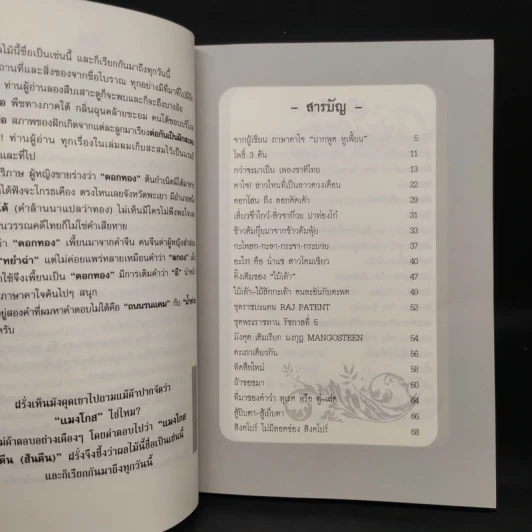 ไม้นี้ชื่อเป็นเช่นนี้ และก็เรียกกันมาถึงทุกวันนี้
ถานที่และสิ่งของจากชื่อโบราณ ทุกอย่างมีที่มาที่ไป
ท่านผู้อ่านลองสืบเสาะดูก็จะพบและก็จะถึงบางอ้อ
พืชทางภาคใต้ กลิ่นฉุนคล้ายชะอม คนใต้ชอบ
สภาพของฝักเกิดจากแต่ละลูกมาเรียงต่อกันเป็นฝัก
! ท่านผู้อ่าน ทุกเรื่องในเล่มผมเก็บสะสมไว้เป็น
และที่ไป
ริภาษ ผู้หญิงขายร่างว่า "ดอกทอง" ต้นกำเนิดมิได้
ได้ฟังจะโกรธเคือง ตรงไหนเลยจังหวัดพะเยา มีอำเภอ
ได้ (คำล้านนาแปลว่าทอง) ไม่เห็นมีใครไม่พึงพอใจ
นวรรณคดีไทยก็ไม่ใช่คำเสียหาย
ว่า "ดอกทอง" เพี้ยนมาจากคำจีน คนจีนด่าผู้หญิง
"หยำฉ่า" แต่ไม่ค่อยแพร่หลายเหมือนคำว่า
ใช้จึงเพี้ยนเป็น "ดอกทอง" มีการเติมคำว่า "อี"
ภาษาคาใจค้นไปๆ สนุก
ยู่สองคำที่ผมหาคำตอบไม่ได้คือ "ถนนรนแคม" กับ
ครับ
ฝรั่งเห็นมังคุดเขาไปถามแม้ค้าปากจัดว่า
"แมงโกส" ใช่ไหม?
ม่ค้าตอบอย่างเคืองๆ โดยคำตอบไปว่า "แมงโกส
ตีน (ส้นตีน)" ฝรั่งจึงซึ้งว่าผลไม้นี้ชื่อเป็นเช่นนี้
และก็เรียกกันมาถึงทุกวันนี้
- สารบัญ -
จากผู้เขียน ภาษาคาใจ "ปากพูด หูเพี้ยน" 5
โพธิ์ 3 ต้น 11
กว่าจะมาเป็น เพลงชาติไทย 13
คาใจ! สาวไหนที่เป็นดาวดวงเดือน 22
ดอกโสน ถึง ดอกคัดเค้า 29
เฮี้ยวจี่โกว้-อิ่วจาก๊วย ปาท่องโก๋ 31
ข้าวต้มกุ๊ยมาจากข้าวต้มพุ้ย 33
กะโหลก-กะลา-กระจา-กระบวย 37
อะไร! คือ น้ำแช่ สาวโคมเขียว 40
ดั้งเดิมของ "ไม้เท้า" 47
ไม้เท้า-ไม้สักกะเท้า คนละอันกันตะพด 49
ชุดราชปะแตน RAJ PATENT 52
ชุดพระราชทาน รัชกาลที่ 5
มังคุด เดิมเรียก มงกุฎ MANGOSTEEN 54
ตะเภาเดียวกัน 56
ทิดสึกใหม่ 58
ผ้าขอขมา 60
ที่มาของคำว่า 64
66
สิงคโปร์ ไม่มีลอดช่อง สิงคโปร์ 68